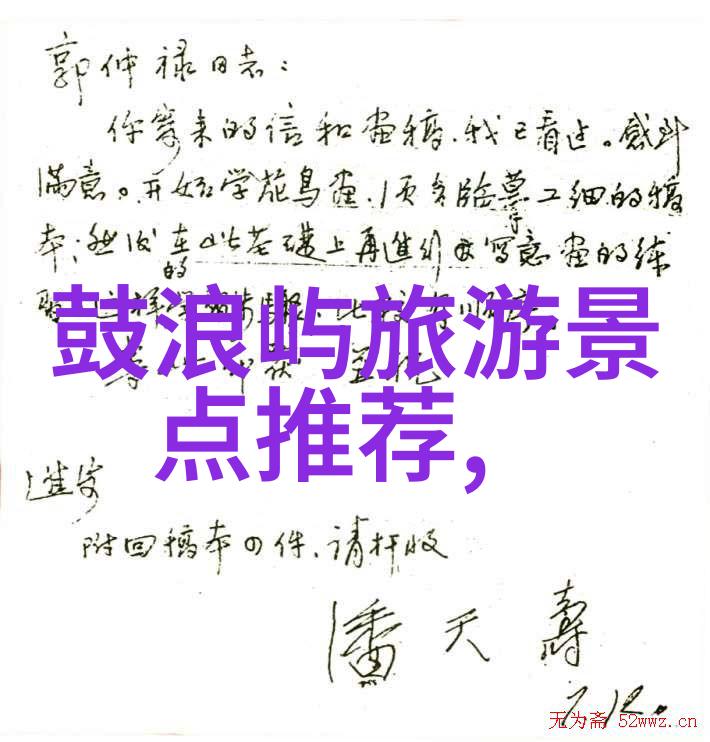 郭仲禄同志：
你寄来的信和画稿，我已看过。感到
满意。开始学花鸟画，须多临摹工细的稿
本；然后在此基础上再进行写意画的练
的
鼓浪屿旅游景
点推荐，
附回稿本四件，请检收
潘天寿
7.12.
无为斋 52wwz.cn